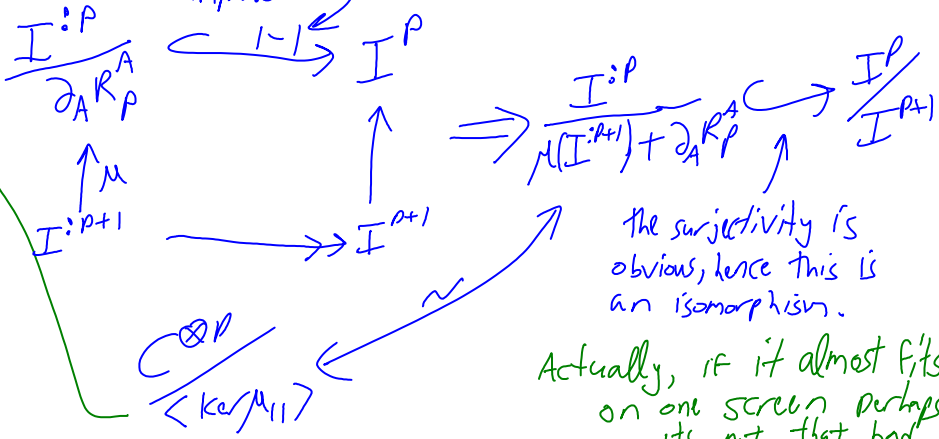 I^{:p} / ∂_A R_p^A
1-1
I^p
μ
I^{:p+1}
I^{p+1}
⇒
I^{:p} / μ(I^{:p+1}) + ∂_A R_p^A
I^p / I^{p+1}
the surjectivity is
obvious, hence this is
an isomorphism.
~
C^{⊗p} / <ker μ_{11}>
Actually, if it almost fits
on one screen perhaps
its not that bad